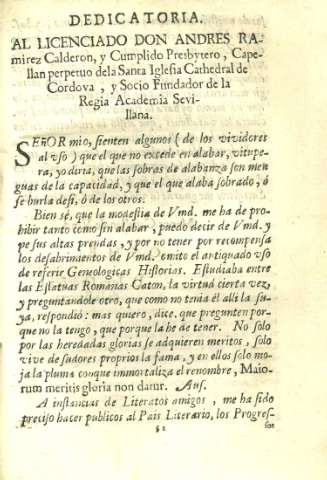 DEDICATORIA.
AL LICENCIADO DON ANDRES RA-
mirez Calderon, y Cumplido Presbytero, Cape-
llan perpetuo de la Santa Iglesia Cathedral de
Cordova, y Socio Fundador de la
Regia Academia Sevi-
llana.
SEÑOR mio, sienten algunos (de los vividores
al vso) que el que no excede en alabar, vitupe-
ra, yo diria, que las sobras de alabanza son men
guas de la capacidad, y que el que alaba sobrado, ó
se burla desi, ò de los otros.
Bien sè, que la modestia de Vmd. me ha de pro-
hibir tanto como sin alabar, puedo decir de Vmd. y
pe sus altas prendas, y por no tener por recompensa
los desabrimentos de Vmd. omito el antiquado vso
de referir Genuologicas Historias. Estudiaba entre
las Estatuas Romanas Caton, la virtud cierta vez,
y preguntandole otro, que como no tenia èl alli la su-
ya, respondiò: mas quiero, dice, que pregunten por-
que no la tengo, que porque la he de tener. No solo
por las heredadas glorias se adquieren meritos, solo
vive de sudores proprios la fama, y en ellos solo mo-
ja la pluma conque immortaliza el renombre, Maio-
rum meritis gloria non datur. Aus.
A instancias de Literatos amigos, me ha sido
preciso hacer publicos al Pais Literario, los Progres-
§2
sos